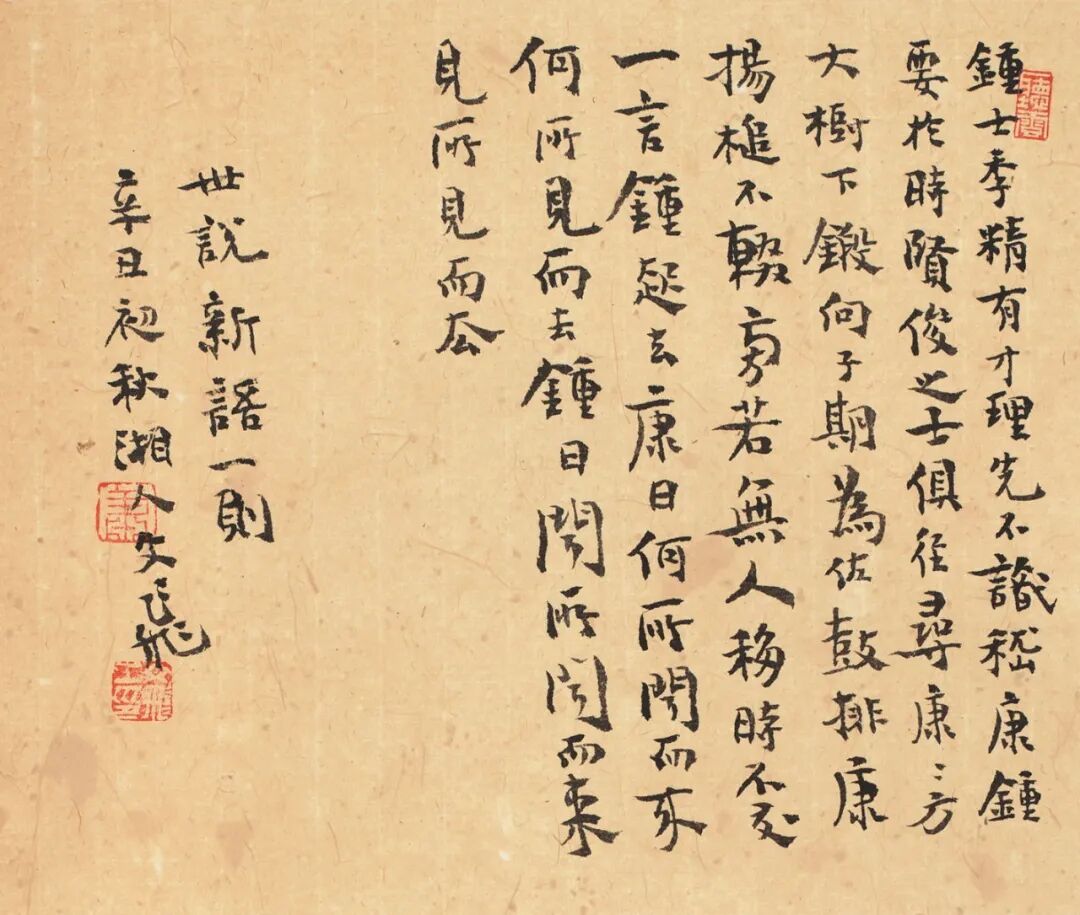 鍾士季精有才理先不識嵇康鍾
要於時賢俊之士俱往尋康〻方
大樹下鍛向子期為佐鼓排康
揚槌不輟旁若無人移時不交
一言鍾起去康曰何所聞而來
何所見而去鍾曰聞所聞而來
見所見而去
世說新語一則
辛丑初秋湘人文飛